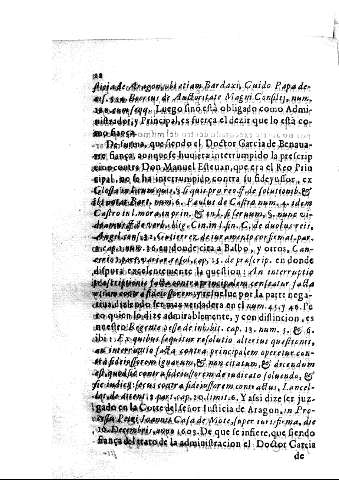 sticia de Aragon, ubi etiam Bardaxi, Guido Papa de-
cis. Boerius de Auctoritate Magni Consilij, num.
cum seqq. Luego sino està obligado como Admi-
nistrador, y Principal, es fuerça el dezir que lo està co-
mo fiança.
De suerte, que siendo el Doctor Garcia de Benaua-
rre fiança, aunque se huuiera interrumpido la prescrip
cion contra Don Manuel Esteuan, que era el Reo Prin
cipal, no se ha interrumpido contra su fideyussor, ex
Glossa in si quis pro reo ff. de solutionib. &
ibi nota Bart. num. 6. Paulus de Castro num. 4. idem
Castro in l. mora, in prin. & in l. si seruum, §. nunc vi-
ff. de verb. oblig. Cin. in l. fin. C. de duobus reis,
Angel. Gutierrez de iuramento confirmat. par.
1. cap. en donde cita a Balbo, y otros, Can-
cerio cap. 15. de præscrip. en donde
disputa excelentemente la question: An interruptio
præscriptionis facta contra principalem censeatur facta
etiam contra fideiussorem; y resuelue por la parte nega-
tiua, diziendo ser mas verdadera en el num. 45. y 46. Pe
ro quien lo dize admirablemente, y con distincion, es
nuestro Regente Sesse de inhibit. cap. 13. num. 5. & 6.
ibi: Ex quibus sequitur resolutio alterius questionis,
an interruptio facta contra principalem operetur con-
tra fideiussorem, & non citatum, & dicendum
est, quod sic contra fideiussorem de iudicato soluendo, &
sic iudicij: secus contra fideiussorem contractus, Lancel-
lot. de attent. 2. part. cap. 20. limit. 6. Y assi dize ser juz-
gado en la Corte del señor Iusticia de Aragon, in Pro-
cessu Petri Ioannis Casa de Mote, super iurisfirma, die
10. Decembris, anno 1603. De que se infiere, que siendo
fiança del trato de la administracion el Doctor Garcia
de